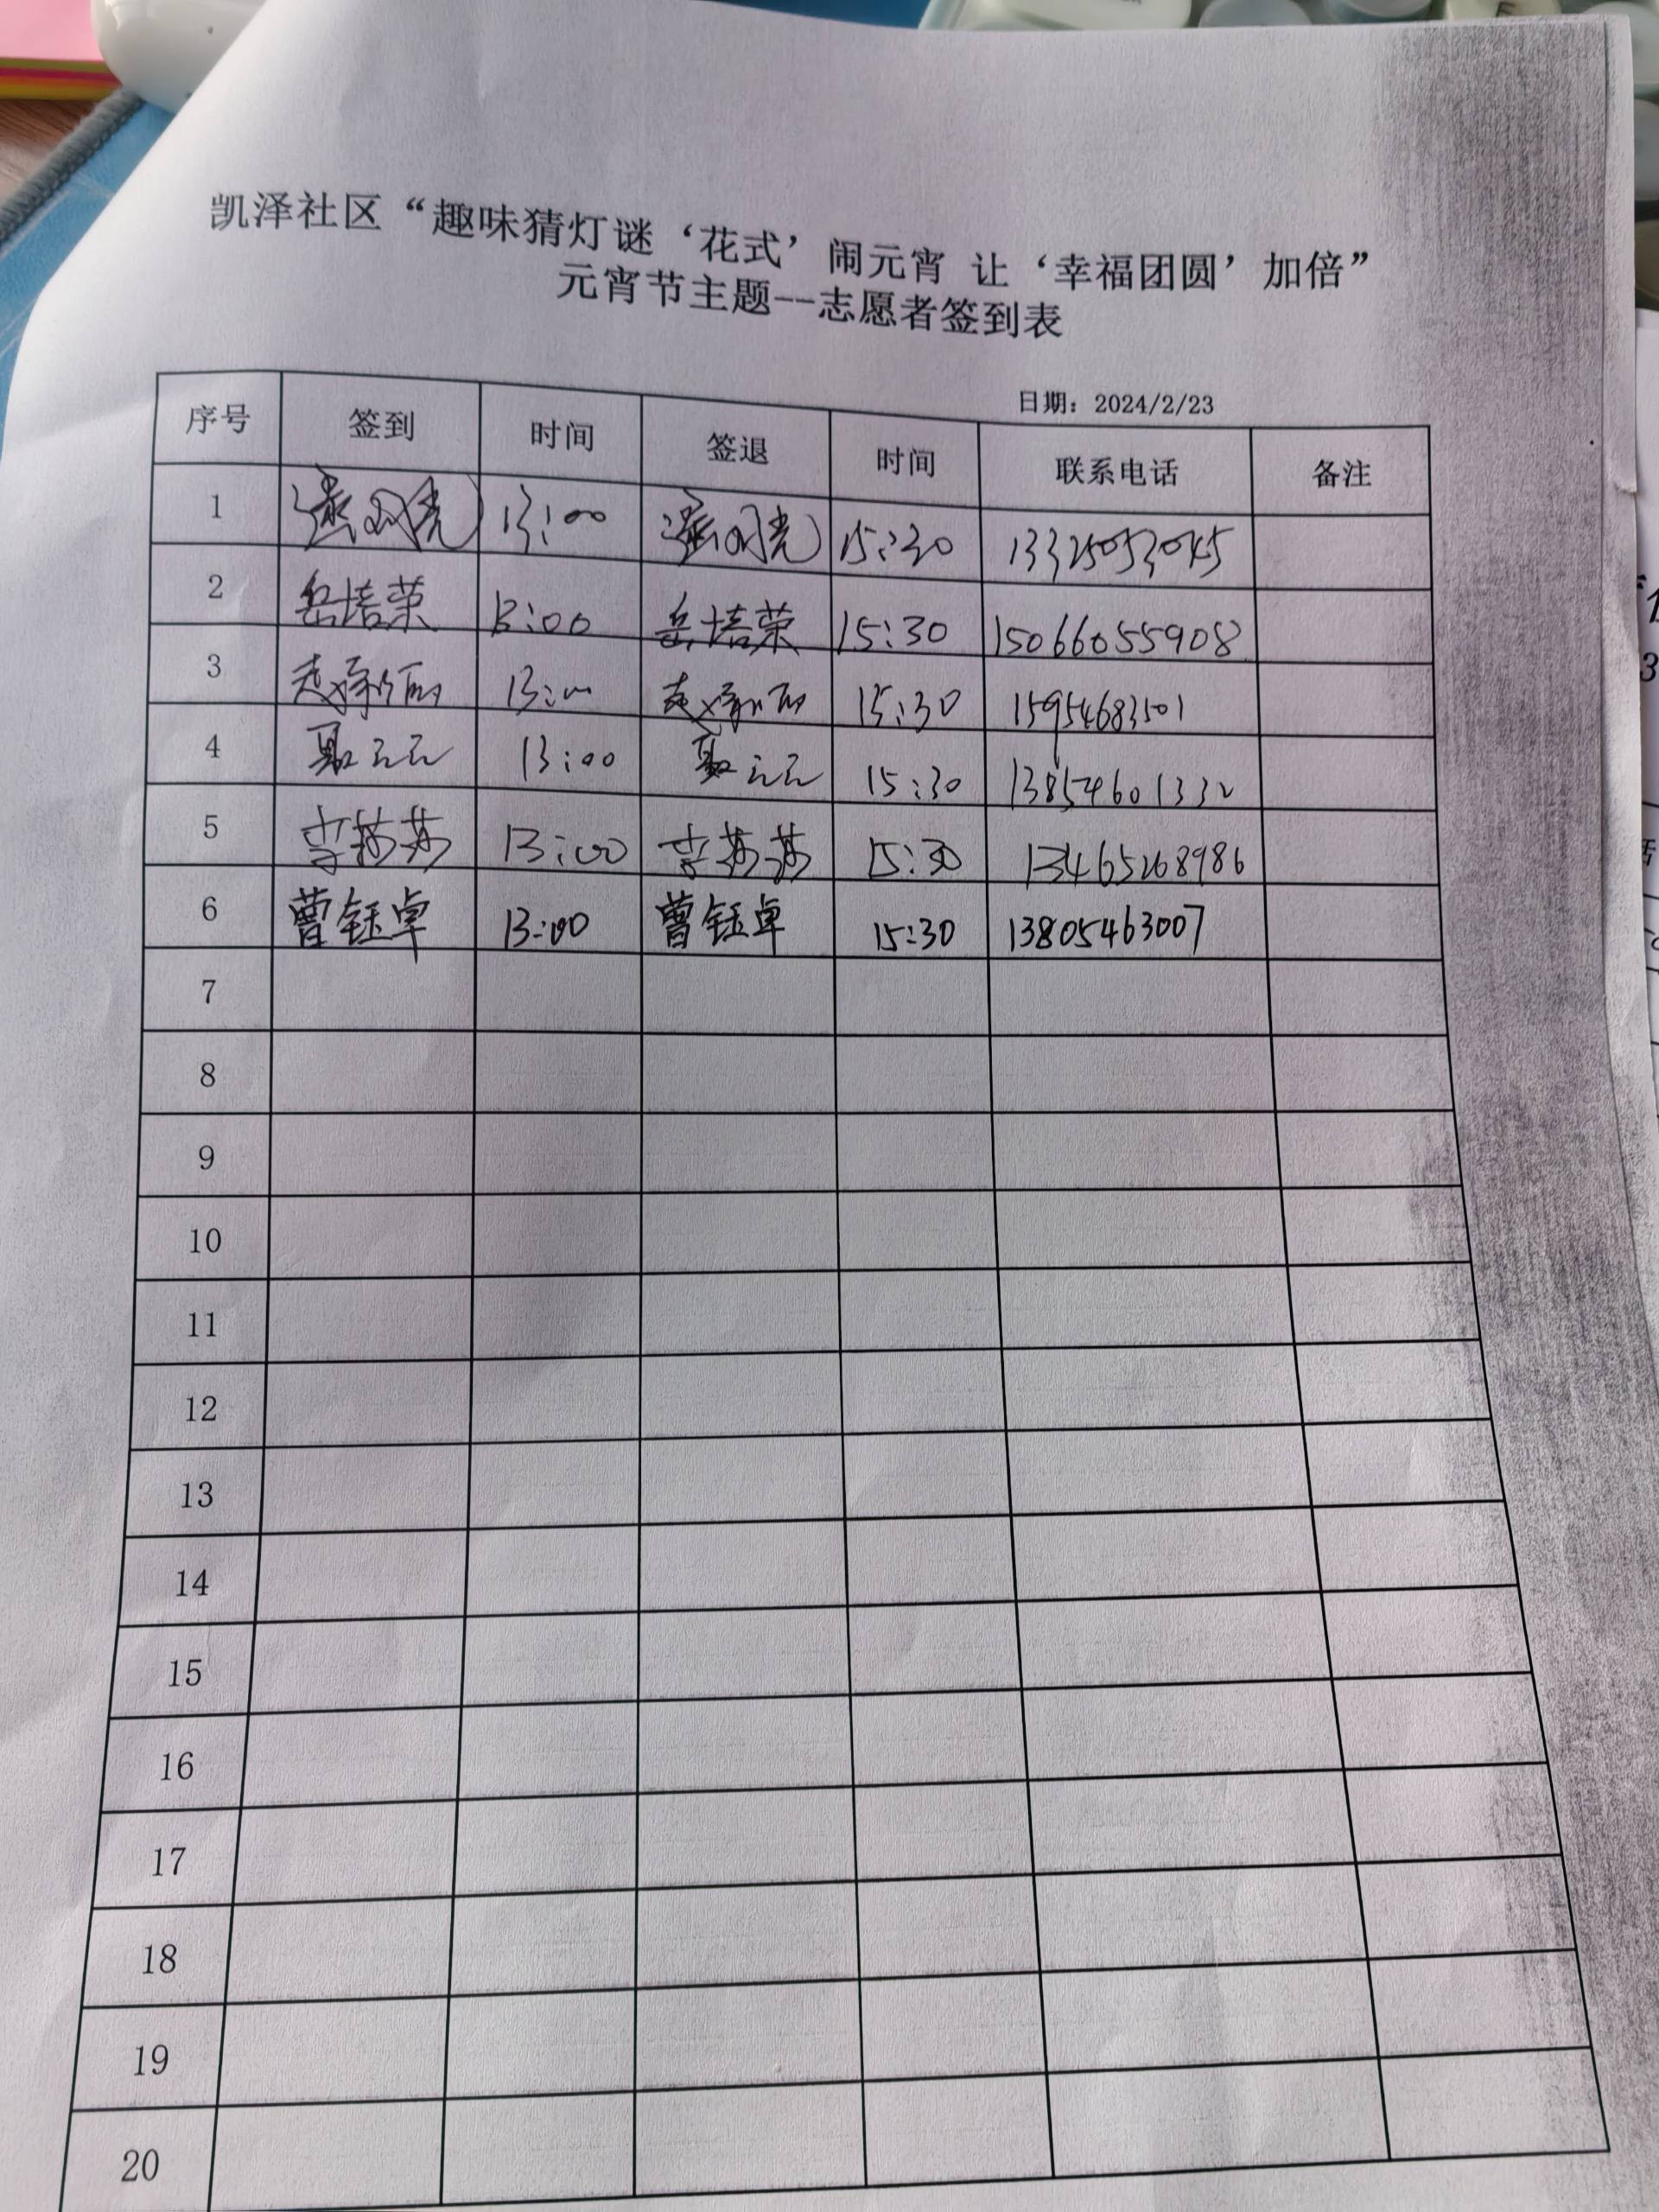 凯泽社区“趣味猜灯谜‘花式’闹元宵 让‘幸福团圆’加倍”
元宵节主题--志愿者签到表
日期：2024/2/23
序号 签到 时间 签退 时间 联系电话 备注
1 13:00 15:30 13325053045
2 岳培荣 13:00 岳培荣 15:30 15066055908
3 13:00 15:30 15954683501
4 聂云云 13:00 聂云云 15:30 13854601332
5 李莎莎 13:00 李莎莎 15:30 13465268986
6 曹钰卓 13:00 曹钰卓 15:30 13805463007
7
8
9
10
11
12
13
14
15
16
17
18
19
20